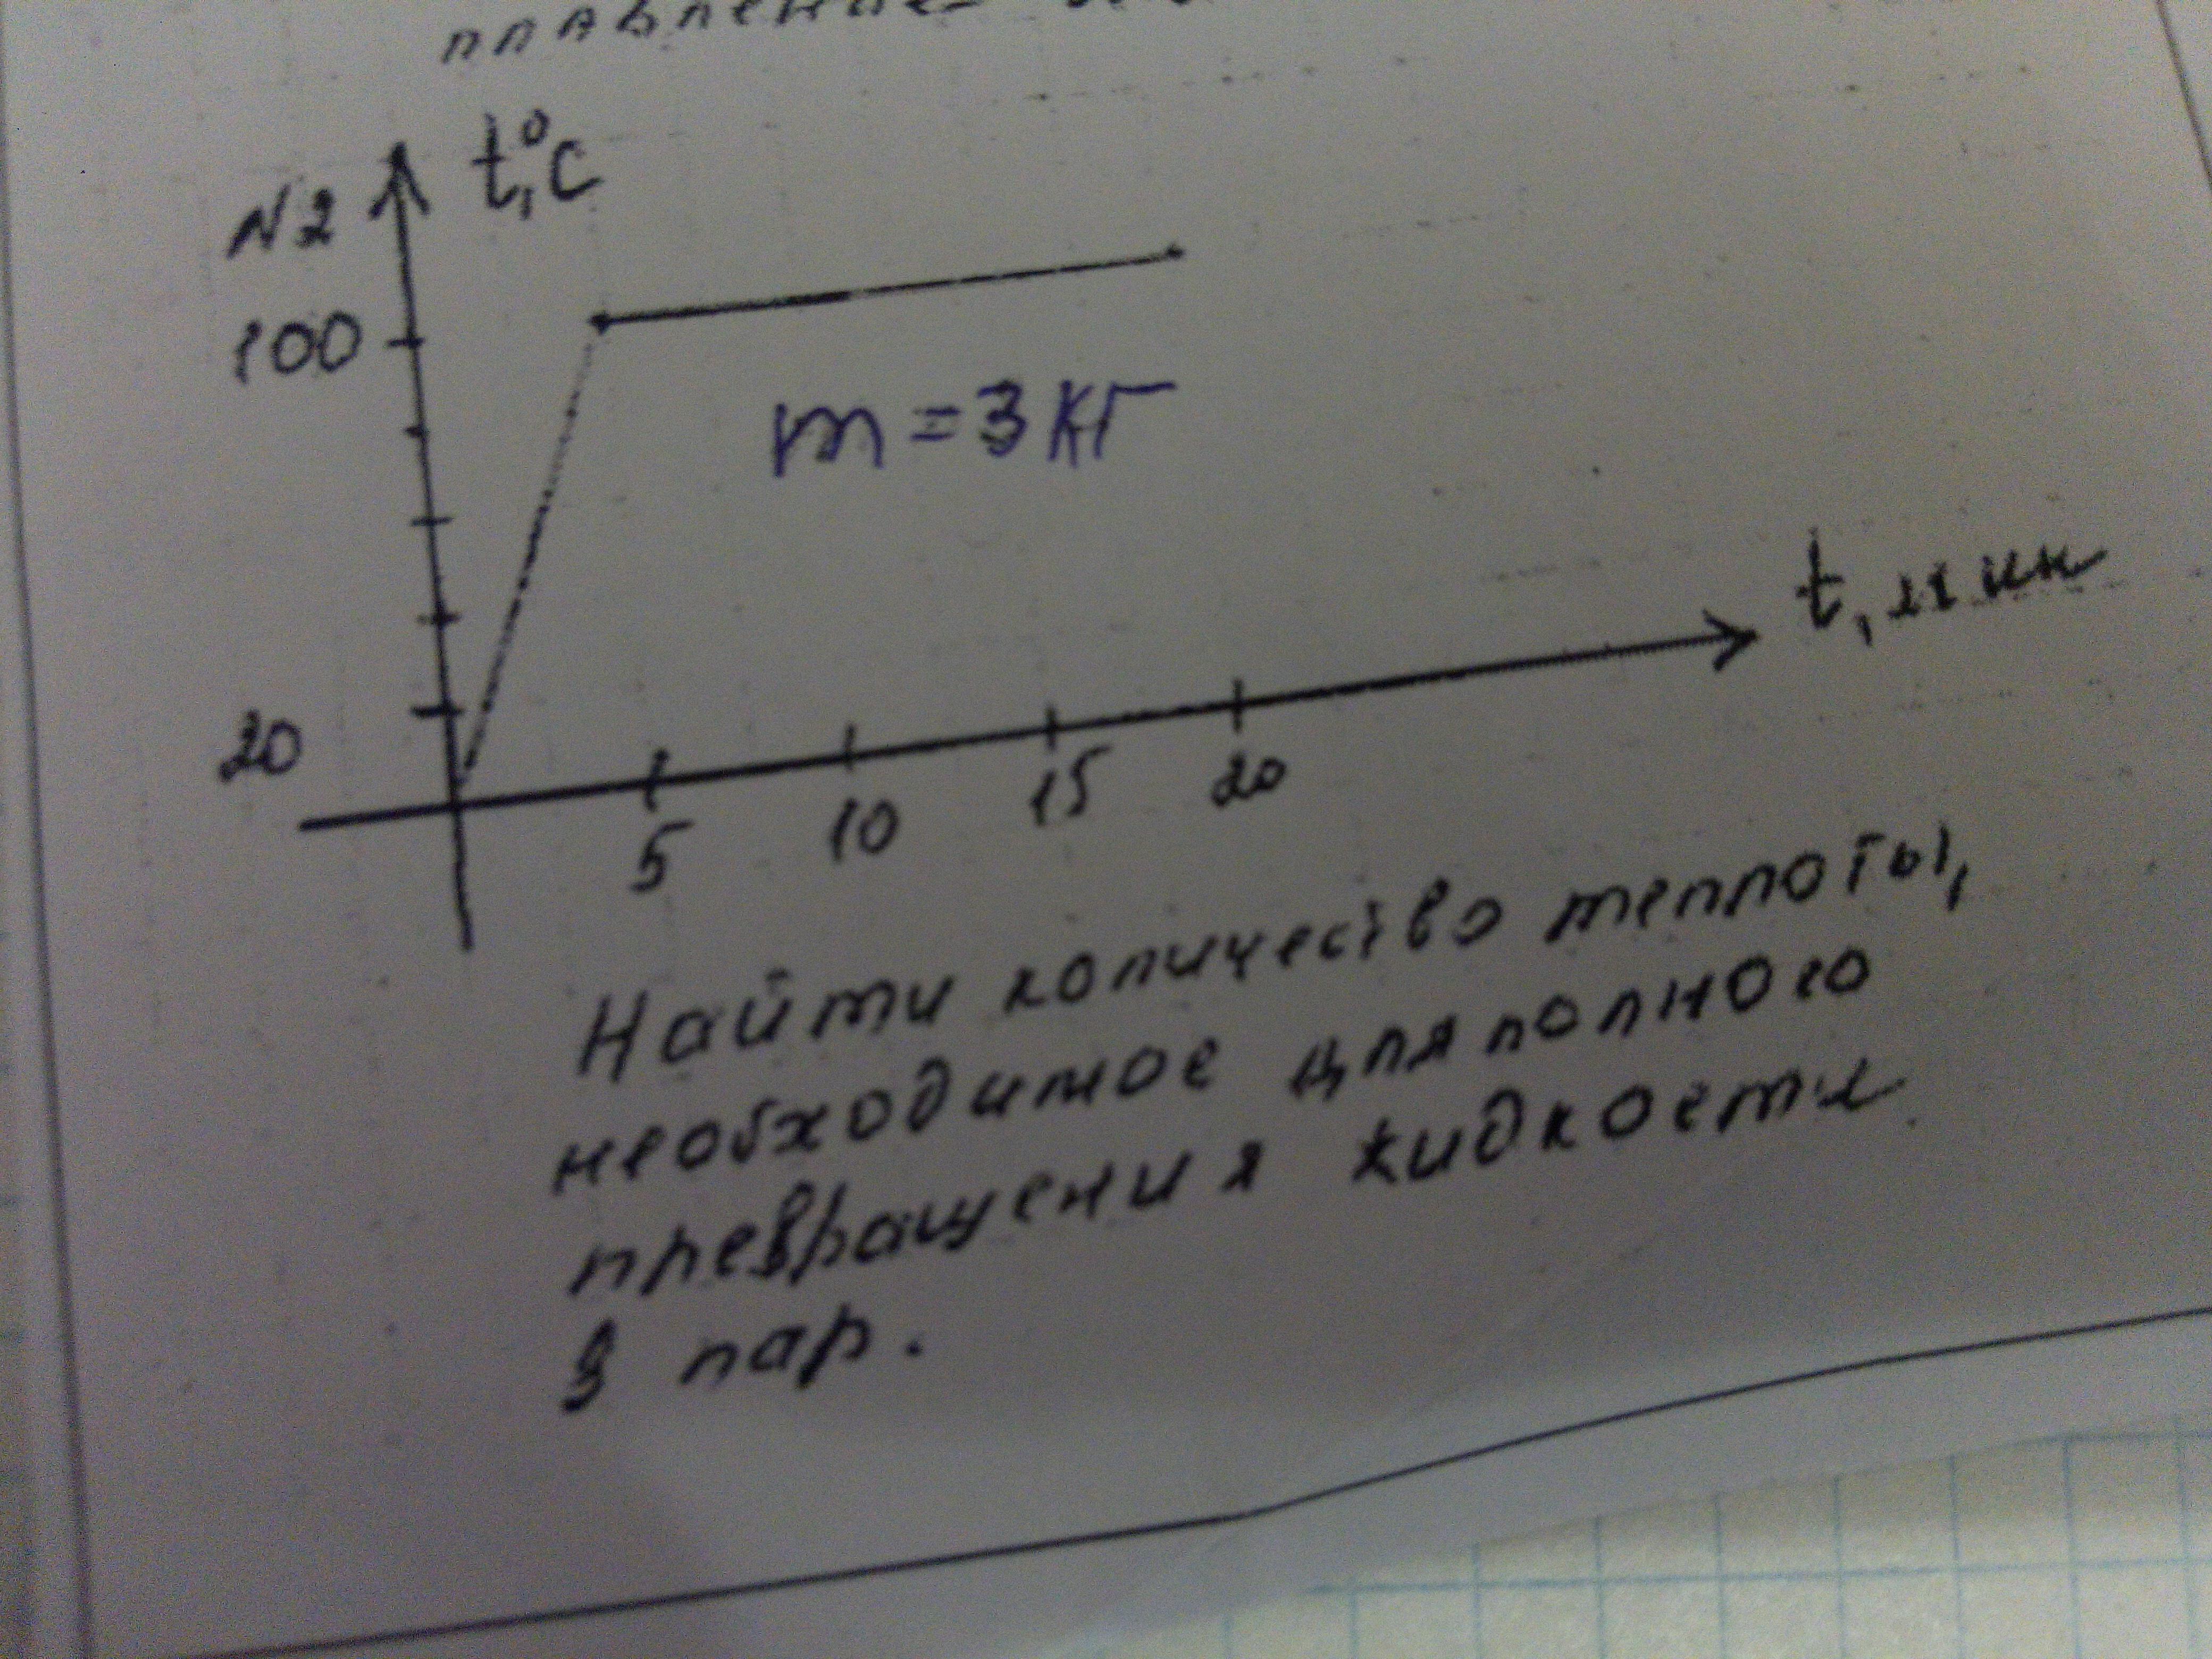 t,°C
N2
100
m = 3 кг
t, мин
20
5
10
15
20
Найти количество теплоты,
необходимое для полного
превращения жидкости
в пар.